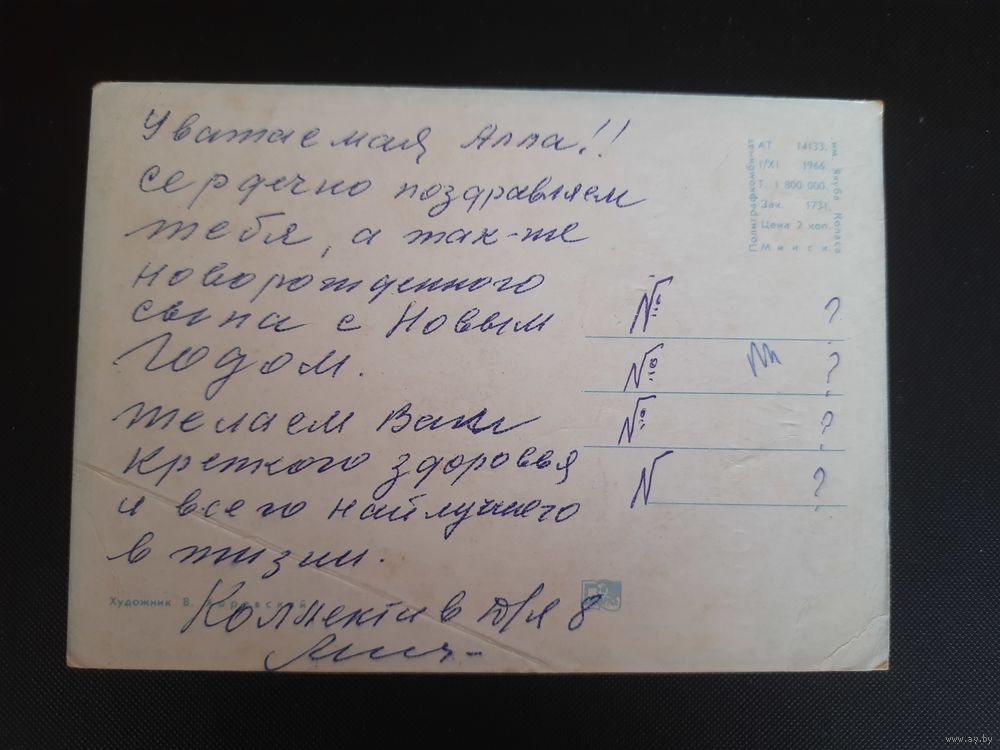 Уважаемая Алла!!
Сердечно поздравляем
тебя, а так-же
новорожденного
сына с Новым
Годом.
Желаем Вам
крепкого здоровья
и всего найлучшего
в жизни.
Коллектив д/я 8
Художник В.
№ ?
№ ?
№ ?
N ?
Полиграфкомбинат
АТ 14133.
I/XI 1966
Т. 1 800 000.
Зак. 1731.
Цена 2 коп.
Минск
им. Якуба Коласа
www.ay.by